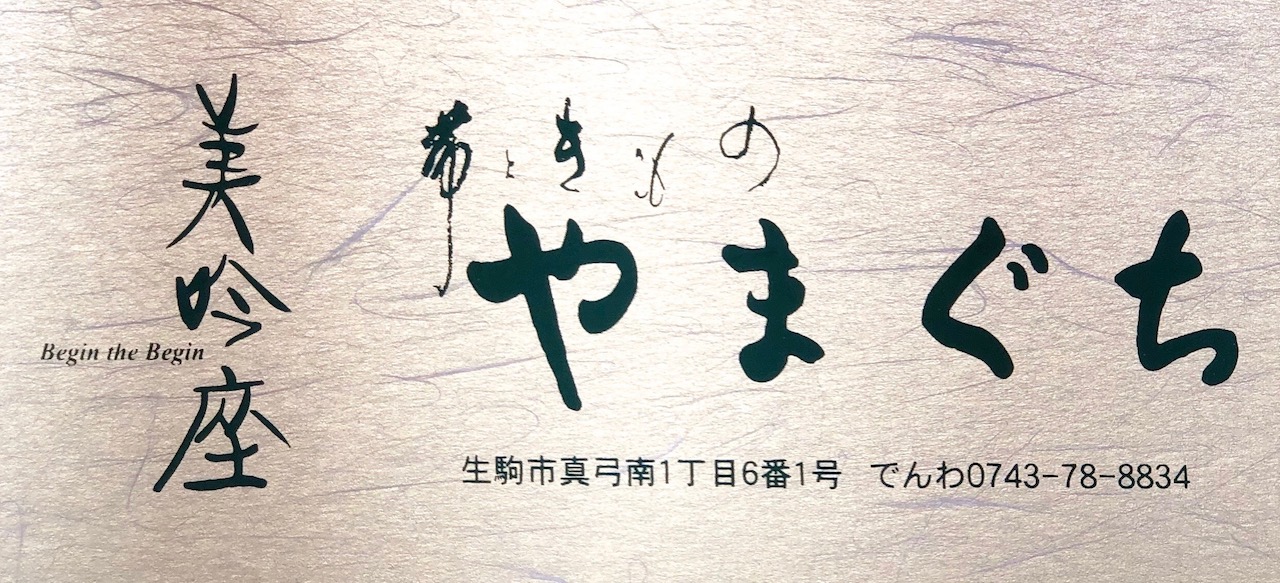 美吟座
Begin the Begin
帯ときものの
やまぐち
生駒市真弓南1丁目6番1号 でんわ0743-78-8834